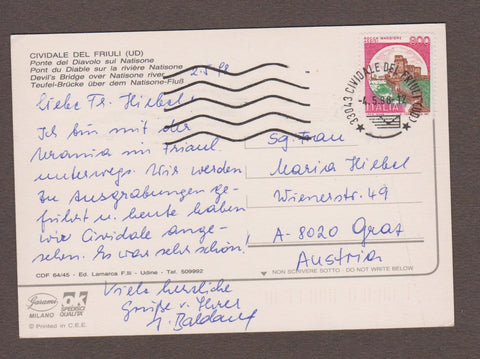 CIVIDALE DEL FRIULI (UD)
Ponte del Diavolo sul Natisone
Pont du Diable sur la rivière Natisone
Devil's Bridge over Natisone river
Teufel-Brücke über dem Natisone-Fluß
Liebe Fr. Hiebel!
Ich bin mit der
Urania im Friaul
unterwegs. Wir werden
zu Ausgrabungen ge-
führt u. heute haben
wir Cividale ange-
sehen. Es war sehr schön.
Viele herzliche
Grüße v. Ihrer
CDF 64/45 - Ed. Lamarca F.lli - Udine - Tel. 509992
Garami
MILANO
QUALITÀ
© Printed in C.E.E.
ROCCA MAGGIORE
800
ITALIA
33043 CIVIDALE DEL FRIULI (UD)
Sg. Frau
Maria Hiebel
Wienerstr. 49
A-8020 Graz
Austria
NON SCRIVERE SOTTO - DO NOT WRITE BELOW